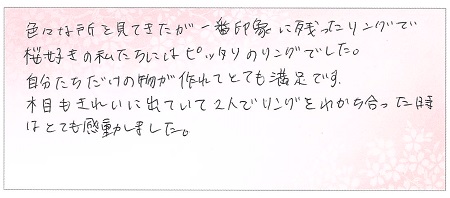 色々な所を見てきたが一番印象に残ったリングで
桜好きの私たちにはピッタリのリングでした。
自分たちだけの物が作れてとても満足です。
木目もきれいに出ていて2人でリングをわかち合った時
はとても感動しました。